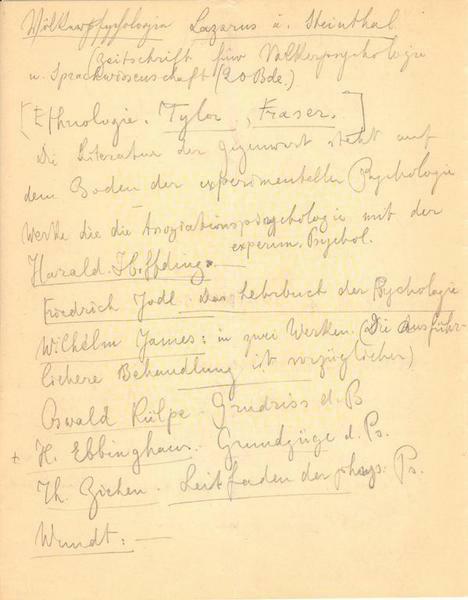 Völkerpsychologie Lazarus u. Steinthal
(Zeitschrift für Völkerpsychologie
u. Sprachwissenschaft (20 Bde.)
[Ethnologie. Tylor, Fraser.]
Die Literatur der Gegenwart steht auf
dem Boden der experimentellen Psychologie
Werke die die Assoziationspsychologie mit der
experim. Psychol.
Harald Höffding. —
Friedrich Jodl. Das Lehrbuch der Psychologie
Wilhelm James: in zwei Werken. (Die Ausführ-
lichere Behandlung ist vorzüglicher)
Oswald Külpe - Grundriss d. P
+ H. Ebbinghaus. Grundzüge d. Ps.
Th. Ziehen. Leitfaden der phys. Ps.
Wundt: —